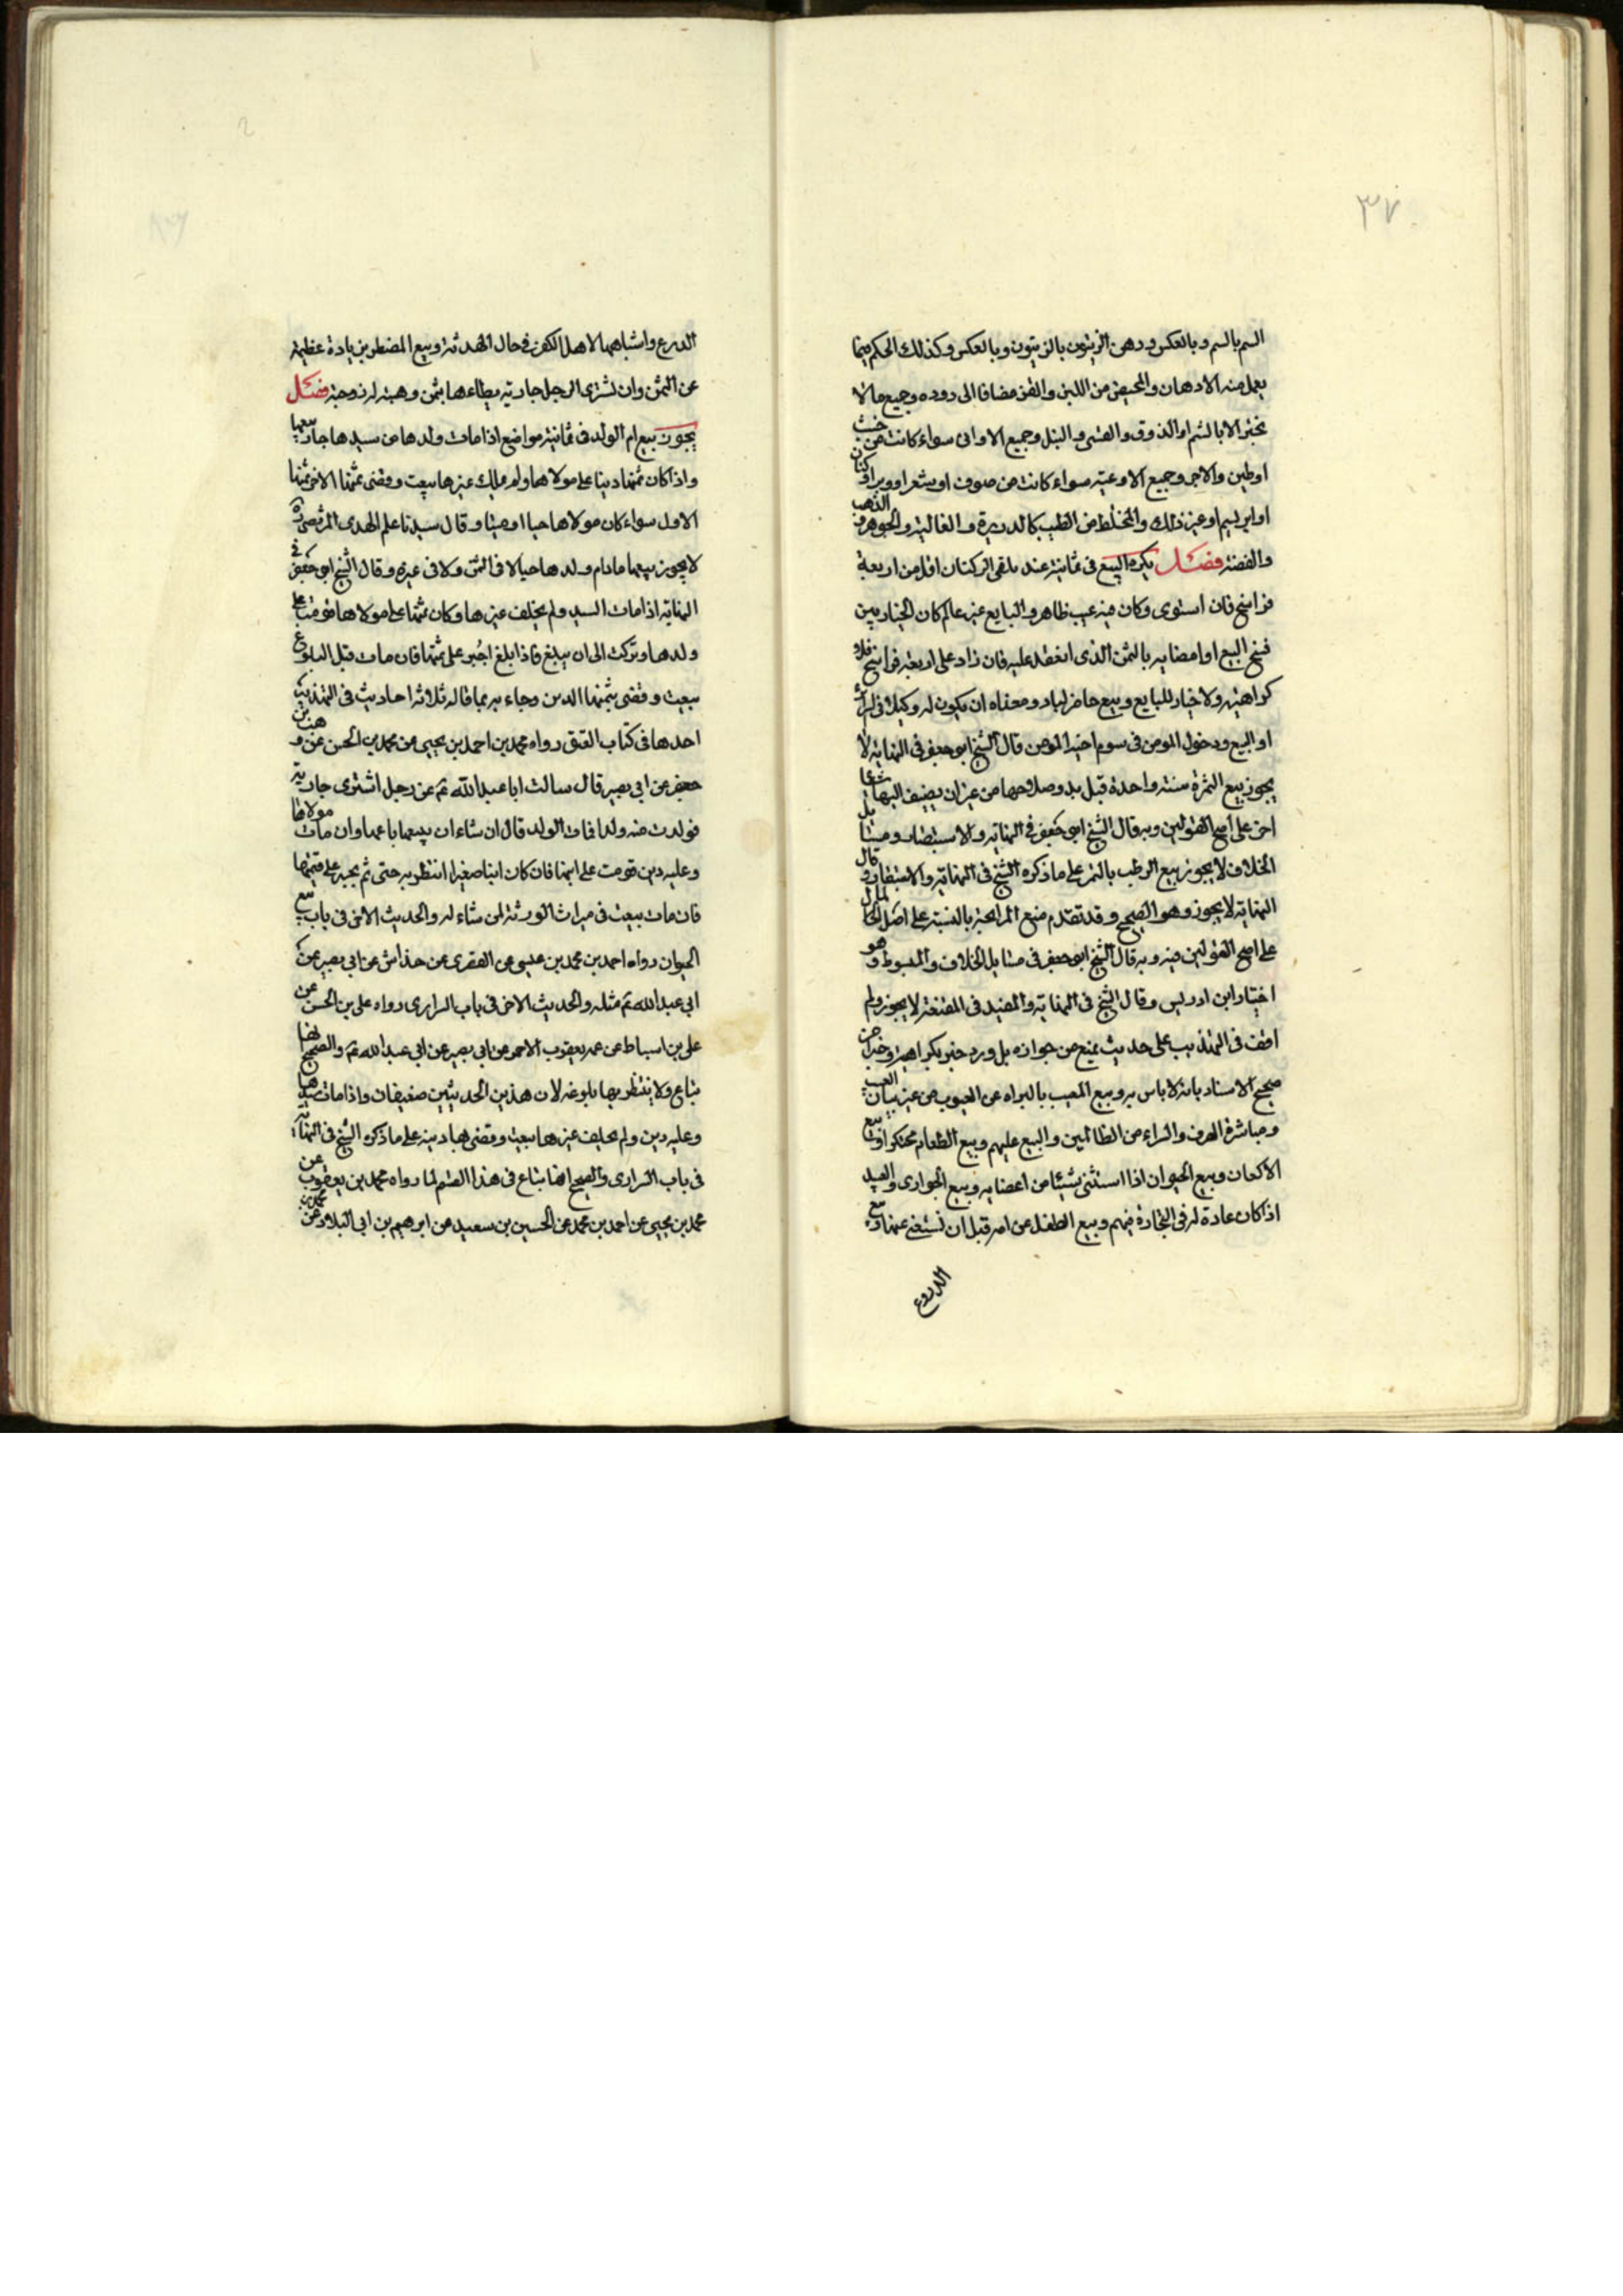 ٣٧
السم بالسم وبالعكس ودهن الزيتون بالزيتون وبالعكس وكذلك الحكم فيما
يعمل منه الادهان والمخيض من اللبن والقز مضافا الى دوده وجميع مالا
يختبر الا بالشم او الذوق والقثى والتبل وجميع الاوانى سواء كانت من خشب
اوطين والاجر وجميع الاوعية سواء كانت من صوف اوشعر اووبر اوكتان
او ابريسم اوغير ذلك والمختلط من الطيب كالذريرة والغالية والجوهر من الذهب
والفضة فصل يكره البيع فى ثمانية عند تلقى الركبان اقل من اربعة
فراسخ فان استوى وكان فيه عيب ظاهر والبايع غير عالم كان الخيار بين
فسخ البيع او امضايه بالثمن الذى انعقد عليه فان زاد على اربعة فراسخ فلا
كراهية ولا خيار للبايع وبيع حاضر لباد ومعناه ان يكون له وكيلا فى الشراء
او البيع ودخول المومن فى سوم اخيه المومن قال الشيخ ابو جعفر فى النهاية لا
يجوز بيع الثمرة سنة واحدة قبل بدو صلاحها من غير ان يضيف اليها شيئا
اخر على اصح القولين وبه قال الشيخ ابى جعفر فى النهاية والاستبصار ومسايل
الخلاف لا يجوز بيع الرطب بالتمر على ماذكره الشيخ فى النهاية والاستبصار وقال
النهاية لا يجوز وهو الصحيح وقد تقدم منع المرابحة بالنسبة على اصل المال
على اصح القولين فيه وبه قال الشيخ ابو جعفر فى مسايل الخلاف والمبسوط وهو
اختيار ابن ادريس وقال الشيخ فى النهاية والمفيد فى المقنعة لا يجوز ولم
اقف فى التهذيب على حديث يمنع من جوازه بل ورد خبر بكراهيته وخبران من
صحيح الاسناد بانه لا باس به وبيع المعيب بالبراه من العيوب من غير بيان العيب
ومباشرة الصرف والشراء من الظالمين والبيع عليهم وبيع الطعام محتكرا وبيع
الاكفان وبيع الحيوان اذا استثنى شيئا من اعضايه وبيع الجوارى والعبيد
اذا كان عادة له فى التجارة فيهم وبيع الطفل عن امه قبل ان تستغنى عنها وبيع
الدروع
الدرع واشباهها لاهل الكفر فى حال الهدنة وبيع المضطر بزيادة عظيمة
عن الثمن وان يشترى الرجل جارية يطاءها بثمن وهبته له زوجته فصل
يجوز بيع ام الولد فى ثمانية مواضع اذا مات ولدها من سيدها جاز بيعها
واذا كان ثمنها دينا على مولاها ولم يملك غيرها بيعت وقضى بثمنها الاخر ثمنها
الاول سواء كان مولاها حيا اوميتا وقال سيدنا علم الهدى المرتضى ره
لا يجوز بيعها مادام ولدها حيا لا فى الثمن ولا فى غيره وقال الشيخ ابو جعفر فى
النهاية اذا مات السيد ولم يخلف غيرها وكان ثمنها على مولاها قومت على
ولدها وتركت الى ان يبلغ فاذا بلغ اجبر على ثمنها فان مات قبل البلوغ
بيعت وقضى بثمنها الدين وجاء به بما قاله ثلاثة احاديث فى التهذيب
احدها فى كتاب العتق رواه محمد بن احمد بن يحيى عن محمد بن الحسن عن وهب بن
حفص عن ابى بصير قال سالت ابا عبد الله ع عن رجل اشترى جارية
فولدت منه ولدا فمات الولد قال ان شاء ان يبيعها باعها وان مات مولاها
وعليه دين قومت على ابنها فان كان ابنها صغيرا انتظر به حتى ثم يجبر على قيمتها
فان مات بيعت فى ميراث الورثة لمن شاء له والحديث الاخر فى باب بيع
الحيوان رواه احمد بن محمد بن عيسى عن العقرى عن خداش عن ابى بصير عن
ابى عبد الله ع مثله والحديث الاخر فى باب السرارى رواه على بن الحسن عن
على بن اسباط عن عمه يعقوب الاحمر عن ابى بصير عن ابى عبد الله ع والصحيح انها
تباع ولا ينتظر بها بلوغه لان هذين الحديثين ضعيفان واذا مات سيدها
وعليه دين ولم يخلف غيرها بيعت وقضى بها دينه على ماذكره الشيخ فى النهاية
فى باب السرارى والصحيح انها تباع فى هذا القسم لما رواه محمد بن يعقوب عن
محمد بن يحيى عن احمد بن محمد عن الحسين بن سعيد عن ابرهيم بن ابى البلاد عن عمر بن